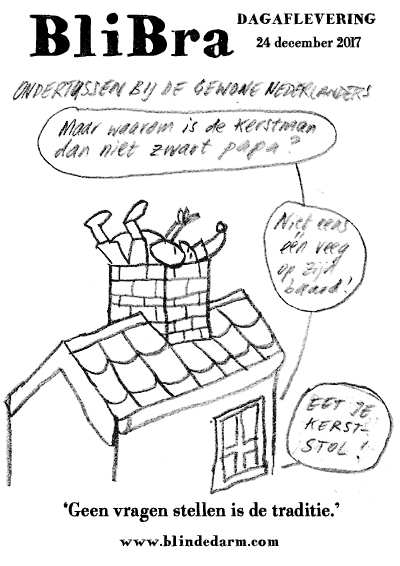 BliBra
DAGAFLEVERING
24 december 2017
ONDERTUSSEN BIJ DE GEWONE NEDERLANDERS
Maar waarom is de Kerstman
dan niet zwart papa?
Niet eens
één veeg
op zijn
baard!
EET JE
KERST-
STOL!
‘Geen vragen stellen is de traditie.’
www.blindedarm.com